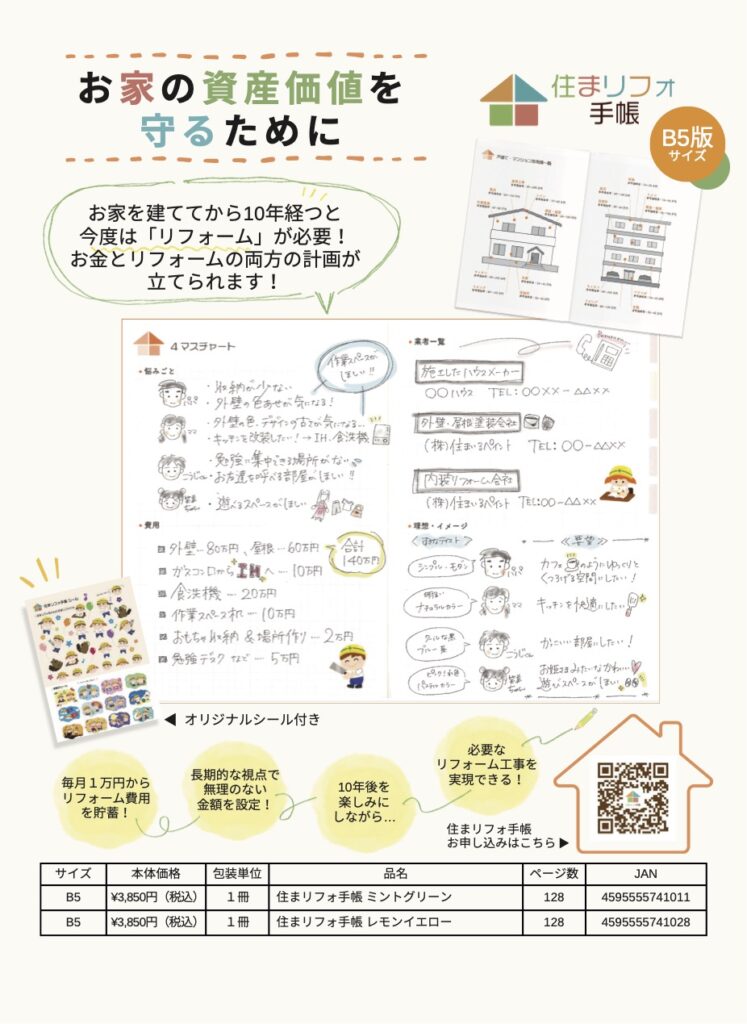 お家の資産価値を
守るために
住まリフォ
手帳
B5版
サイズ
戸建て・マンション説明図一覧
お家を建ててから10年経つと
今度は「リフォーム」が必要！
お金とリフォームの両方の計画が
立てられます！
4マスチャート
作業スペースが
ほしい!!
・悩みごと
パパ
・収納が少ない
・外壁の色あせが気になる！
ママ
・外壁の色・デザインの古さが気になる…
・キッチンを改装したい！→IH、食洗機
こうじくん
・勉強に集中できる場所がない
・お友達も呼べる部屋がほしい!!
・遊べるスペースがほしい
・費用
外壁…80万円、屋根…60万円
合計
140万円
ガスコンロからIHへ…10万円
食洗機…20万円
作業スペース机…10万円
おもちゃ収納&場所作り…2万円
勉強デスクなど…5万円
・業者一覧
施工したハウスメーカー
〇〇ハウス TEL:〇〇××-△△××
外壁・屋根塗装会社
(株)住まいるペイント TEL:〇〇-△△××
内装リフォーム会社
(株)住まいるペイント TEL:〇〇-△△××
・理想・イメージ
《好みなテイスト》
《要望》
シンプル・モダン
パパ
カフェのようにゆっくりと
くつろげる空間にしたい！
明るい
ナチュラルカラー
ママ
キッチンを快適にしたい！
クールな黒
ブルー系
こうじくん
かっこいい部屋にしたい！
ピンク！水色
パステルカラー
お姫さまみたいなかわいい
遊びスペースがほしい
◀ オリジナルシール付き
毎月１万円から
リフォーム費用
を貯蓄！
長期的な視点で
無理のない
金額を設定！
10年後を
楽しみに
しながら…
必要な
リフォーム工事を
実現できる！
住まリフォ手帳
お申し込みはこちら▶
サイズ 本体価格 包装単位 品名 ページ数 JAN
B5 ¥3,850円（税込） １冊 住まリフォ手帳 ミントグリーン 128 4595555741011
B5 ¥3,850円（税込） １冊 住まリフォ手帳 レモンイエロー 128 4595555741028